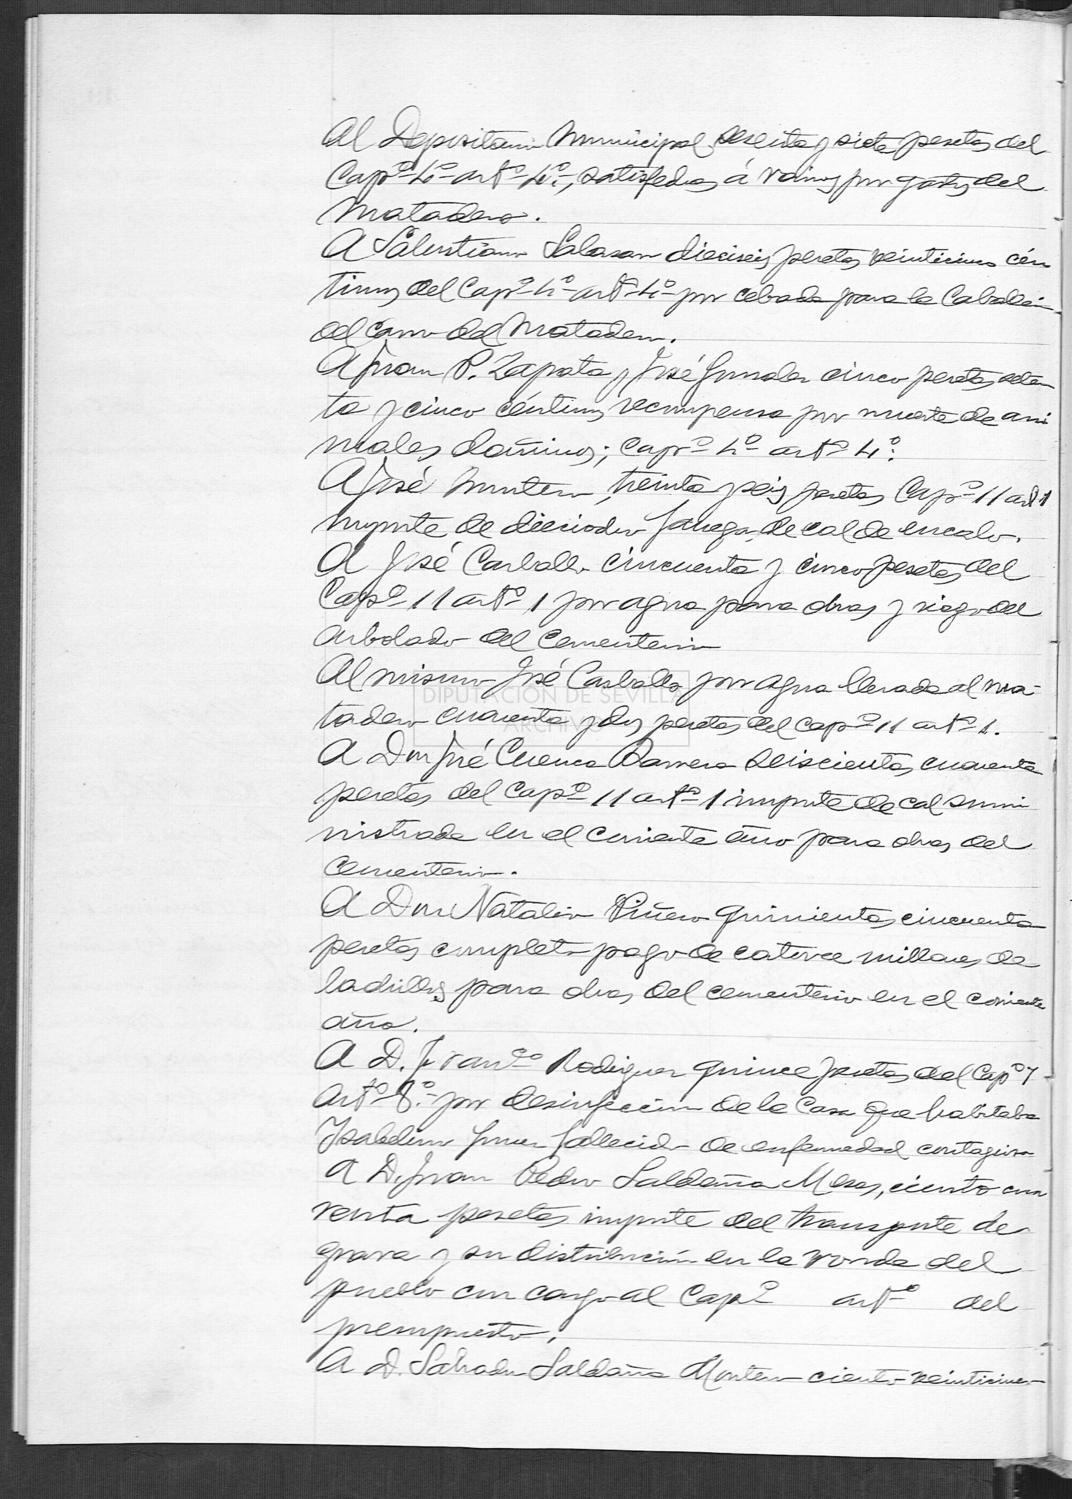 Al Depositario Municipal sesenta y siete pesetas del
Capº 4º artº 4º, satisfechas á varios por gastos del
Matadero.
A Salustiano Salazar dieciseis pesetas veinticinco cén
timos del Capº 4º artº 4º por cebada para la Caballeria
del carro del Matadero.
A Juan P. Zapata y José Gonzalez cinco pesetas seten
ta y cinco céntimos recompensa por muerte de ani
males dañinos; Capº 4º artº 4º.
A José Montero treinta y seis pesetas Capº 11 artº 1
importe de dieciocho fanegas de cal de encalo.
A José Carballo cincuenta y cinco pesetas del
Capº 11 artº 1 por agua para obras y riego del
arbolado del Cementerio
Al mismo José Carballo por agua llevada al ma-
tadero cuarenta y dos pesetas del capº 11 artº 1.
DIPUTACIÓN DE SEVILLA
ARCHIVO
A Don José Cuenca Barrera seiscientas cuarenta
pesetas del Capº 11 artº 1 importe de cal sumi
nistrada en el corriente año para obras del
Cementerio.
A Don Natalio Piñero quinientas cincuenta
pesetas completo pago de catorce millares de
ladrillos para obras del cementerio en el corriente
año.
A D. Franco Rodriguez quince pesetas del Capº 7
artº 8º por desinfeccion de la Casa que habitaba
fallecido de enfermedad contagiosa
A D. Juan Pedro Saldaña Mesas, ciento cua
renta pesetas importe del transporte de
grava y su distribución en la ronda del
pueblo con cargo al Capº artº del
presupuesto.
A D. Salvador Saldaña Montero ciento veinticinco